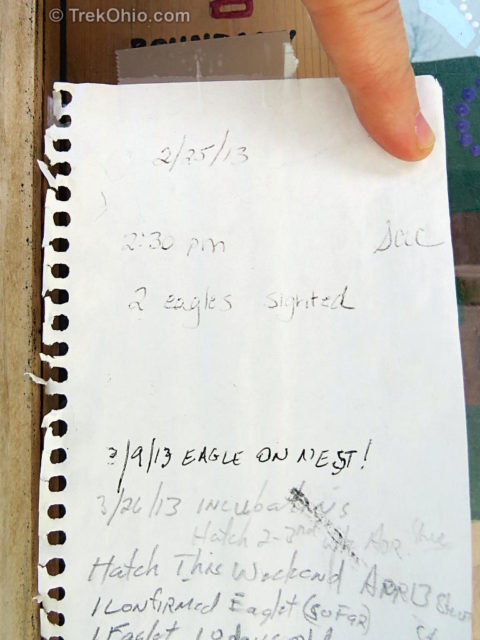 © TrekOhio.com
2/25/13
2:30 pm
2 eagles sighted
3/9/13 EAGLE ON NEST!
3/26/13 INCUBATING
Hatch 2-3rd Apr
Hatch This Weekend APR 13
1 Confirmed Eaglet (SO FAR)
1 Eaglet 10 days old